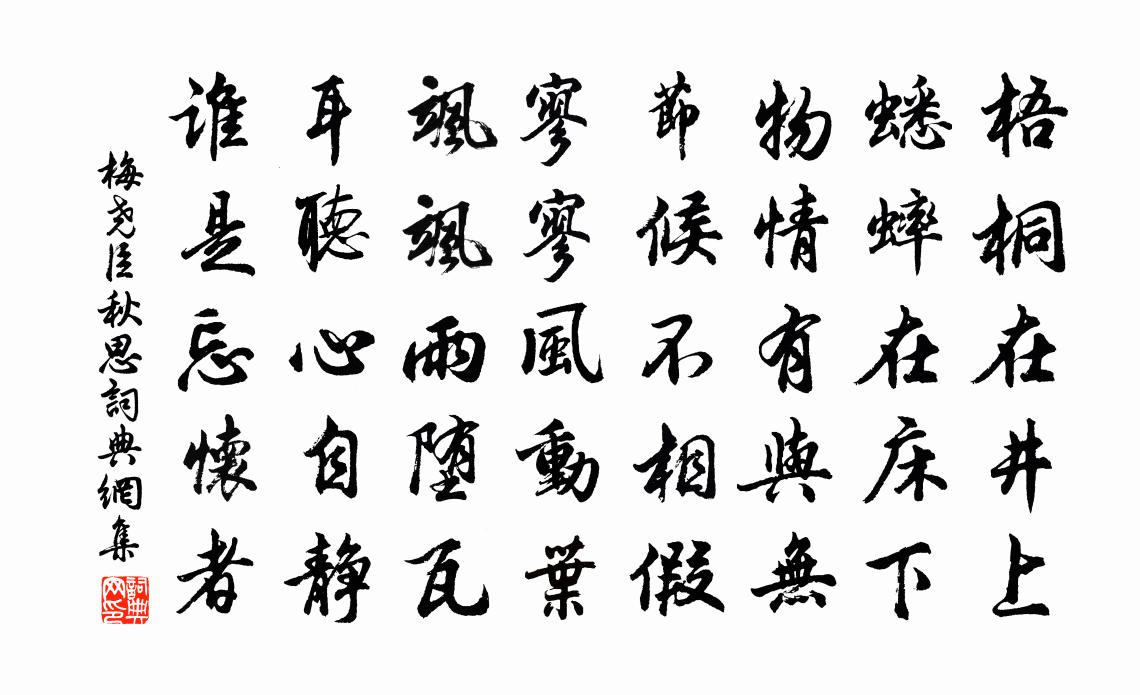 梧桐在井上
蟋蟀在床下
物情有與無
節候不相假
寥寥風動葉
颯颯雨墮瓦
耳聽心自静
誰是忘懷者
梅尧臣秋思詞典網集